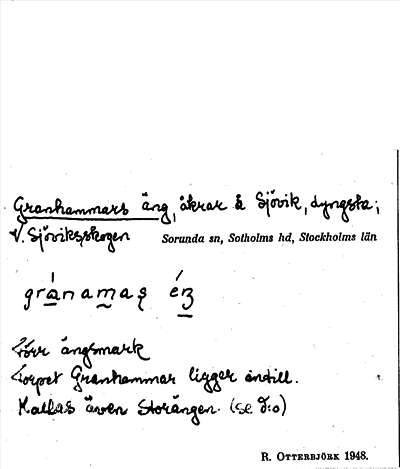 Granhammars äng, åkrar å Sjövik, dyngsta;
V. Sjöviksskogen Sorunda sn, Sotholms hd, Stockholms län
Förr ängsmark
Torpet Granhammar ligger intill.
Kallas även Storängen. (se d:o)
R. OTTERBJÖRK 1948.